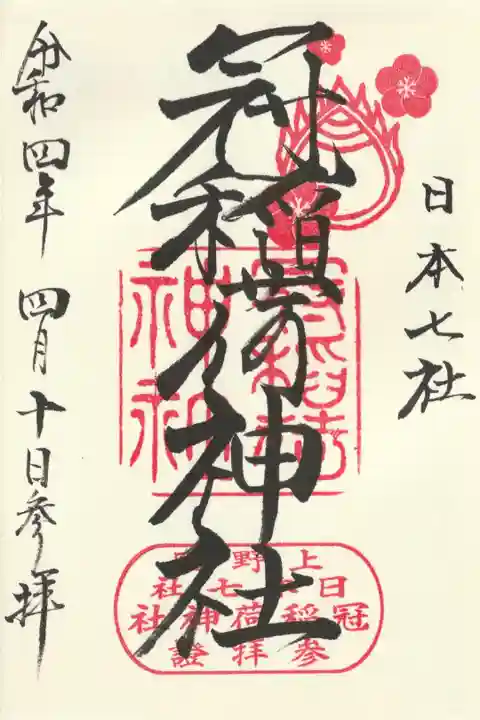 日本七社
冠稲荷神社
令和四年 四月十日参拝
冠稲荷神社
上野國
日本七社
冠稲荷神社
参拝證